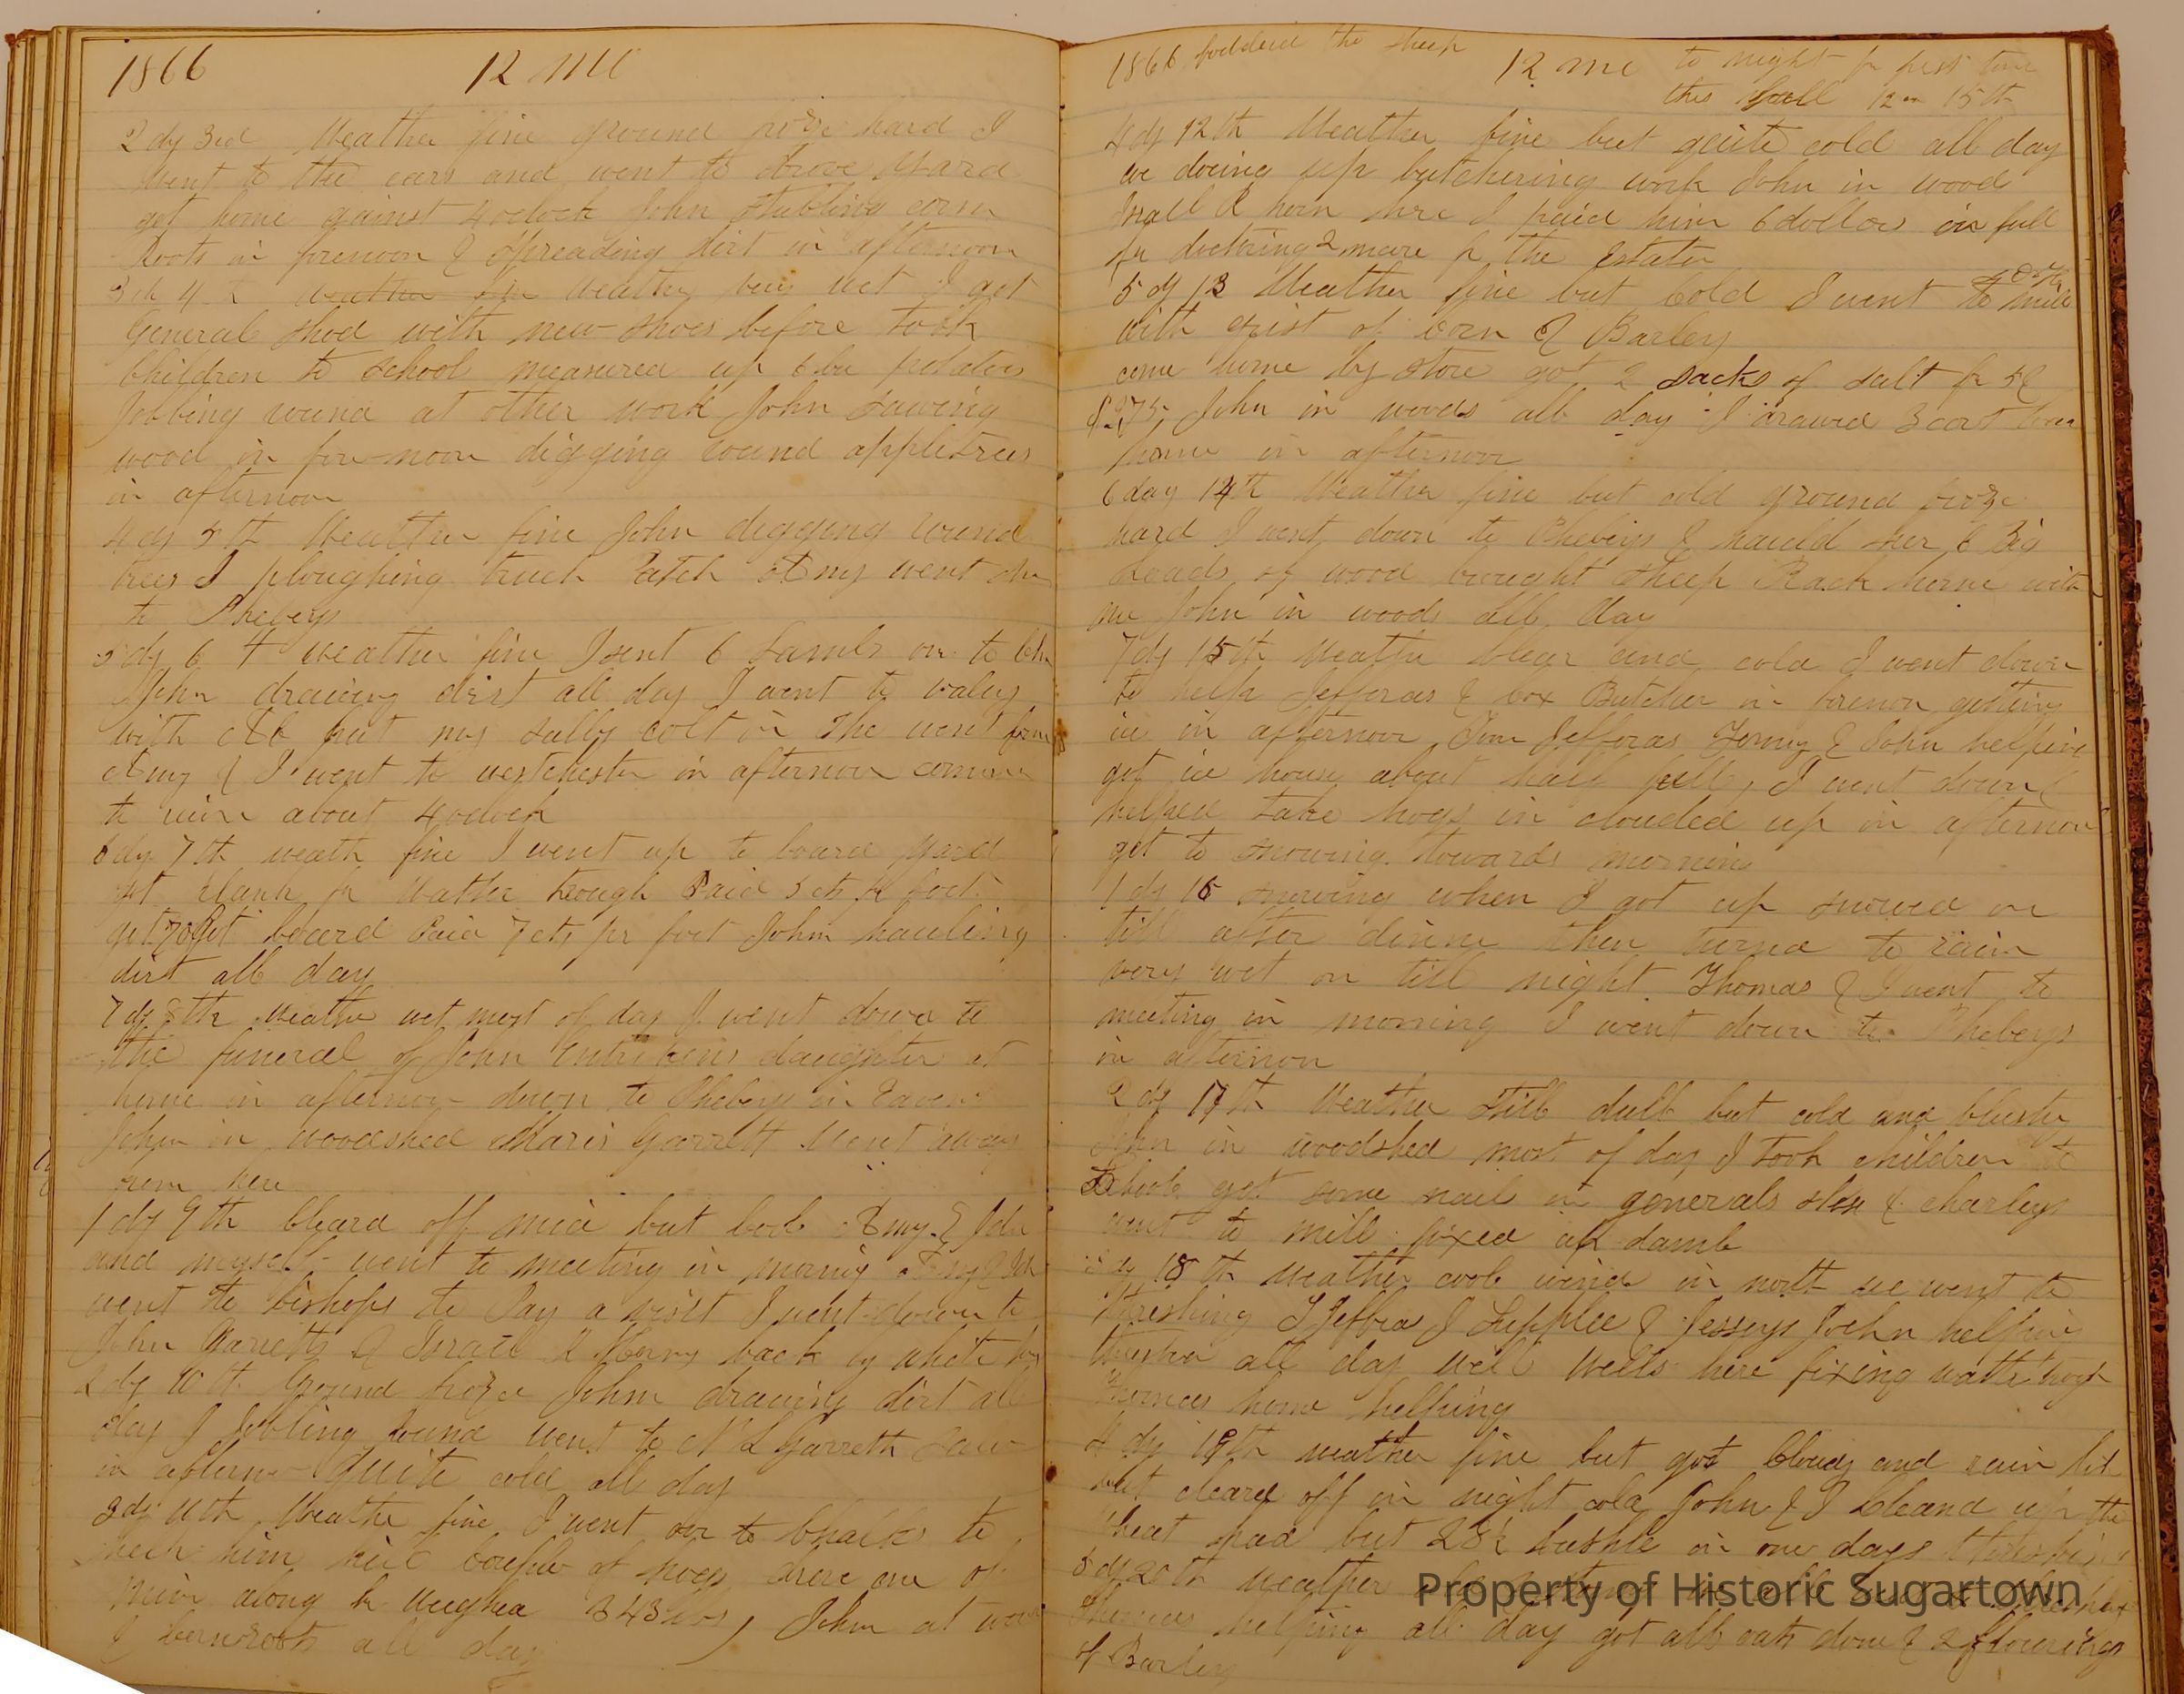 1866 12 mo
2 dy 3rd Weather fine ground froze hard I
went to the cars and went to drove yard
got home against 4 oclock John stubling corn
Roots in forenoon & spreading dirt in afternoon
4 weather fine Weather wet I got
General shod with new shoes before took
Children to school measured up 6 bu potatoes
Jobbing round at other work John sawing
wood in fore noon digging round appletrees
in afternoon
4 dy 5th Weather fine John digging round
trees I ploughing truck Patch Amy went
to Phebeys
5 dy 6 weather fine I sent 6 Lambs on to
John drawing dirt all day I went to
with put my colt in The went
Amy & I went to westchester in afternoon
to about 4 oclock
6 dy 7th weath fine I went up to board yard
got plank for Wather trough Paid 5 cts pr foot
got 70 foot board Paid 7 cts pr foot John hauling
dirt all day
7 dy 8th weather wet most of day I went down to
the funeral of John Entrikens daughter at
home in afternoon down to Phebeys in
John in woodshed Maris Garrett Went away
here
1 dy 9th Cleard off nice but cool Amy & John
and myself went to meeting in morning
went to bishops to Pay a visit I went down to
John Garretts & Israel back by white
2 dy 10th Ground froze John drawing dirt all
day I jobbing round went to Garretts
in quite cold all day
3 dy 11th Weather fine I went over to to
him kill couple of hogs drove one of
along weghed 343 lbs John at
roots all day
1866 foddered the sheep 12 mo to night for first time
this fall 12 m 15th
4 dy 12th Weather fine but quite cold all day
we doing up butchering work John in wood
here I paid him 6 dollars in full
for doctring 2 mare for the Estate
5 dy 13 Weather fine but Cold I went to mill
with Grist of Corn & Barley
come home by store got 2 sacks of salt for
John in woods all day I drawed 3 cart
home in afternoon
6 day 14th Weather fine but cold ground froze
hard I went down to Phebeys & hauld her 6 Big
Loads of wood brought sheep Rack home with
me John in woods all day
7 dy 15th Weather Clear and cold I went down
to help Jefferas & Cox Butcher in forenoon getting
ice in afternoon Jefferas & John helping
got ice house about half full, I went down &
helped take hogs in clouded up in afternoon
got to snowing towards morning
1 dy 16 snowing when I got up snowed on
till after dinner then turned to rain
very wet on till night Thomas & I went to
meeting in morning I went down to Phebeys
in afternoon
2 dy 17th Weather still dull but cold and bluster
John in woodshed most of day I took children to
School got some nail in generals shoe & charleys
went to mill fixed up damb
18th weather cool wind in north we went to
threshing Supplee & Jesseys John helping
all day Will Wells here fixing wattr trough
home helping
4 dy 19th weather fine but got Cloudy and rain
but cleard off in night cold John & I Cleand up the
wheat had but 28½ bushle in one days threshing
5 dy 20th weather
helping all day got all oats done & 2 floorings
of Barley
Property of Historic Sugartown